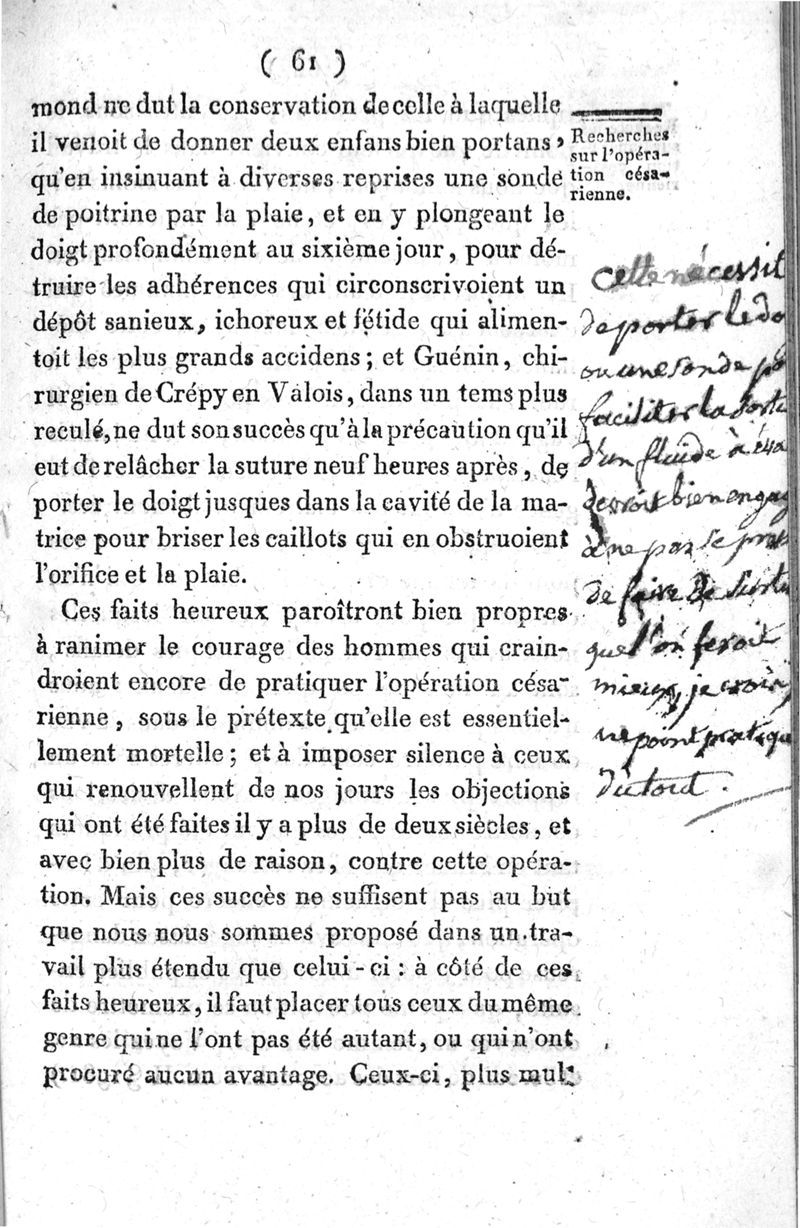 ( 61 )
mond ne dut la conservation de celle à laquelle
il venoit de donner deux enfans bien portans,
qu'en insinuant à diverses reprises une sonde
de poitrine par la plaie, et en y plongeant le
doigt profondément au sixième jour, pour dé-
truire les adhérences qui circonscrivoient un
dépôt sanieux, ichoreux et fétide qui alimen-
toit les plus grands accidens ; et Guénin, chi-
rurgien de Crépy en Valois, dans un tems plus
reculé, ne dut son succès qu'à la précaution qu'il
eut de relâcher la suture neuf heures après, de
porter le doigt jusques dans la cavité de la ma-
trice pour briser les caillots qui en obstruoient
l'orifice et la plaie.
Ces faits heureux paroîtront bien propres
à ranimer le courage des hommes qui crain-
droient encore de pratiquer l'opération césa-
rienne, sous le prétexte qu'elle est essentiel-
lement mortelle ; et à imposer silence à ceux
qui renouvellent de nos jours les objections
qui ont été faites il y a plus de deux siècles, et
avec bien plus de raison, contre cette opéra-
tion. Mais ces succès ne suffisent pas au but
que nous nous sommes proposé dans un tra-
vail plus étendu que celui-ci : à côté de ces
faits heureux, il faut placer tous ceux du même
genre qui ne l'ont pas été autant, ou qui n'ont
procuré aucun avantage. Ceux-ci, plus mul-
Recherches
sur l'opéra-
tion césa-
rienne.
Cette nécessit
de porter le do
ou une sonde po
faciliter la sorti
d'un fluide à
devroit bien engag
à ne pas se
de faire de
que l'on feroit
mieux, je crois,
ne point pratiqu
du tout.